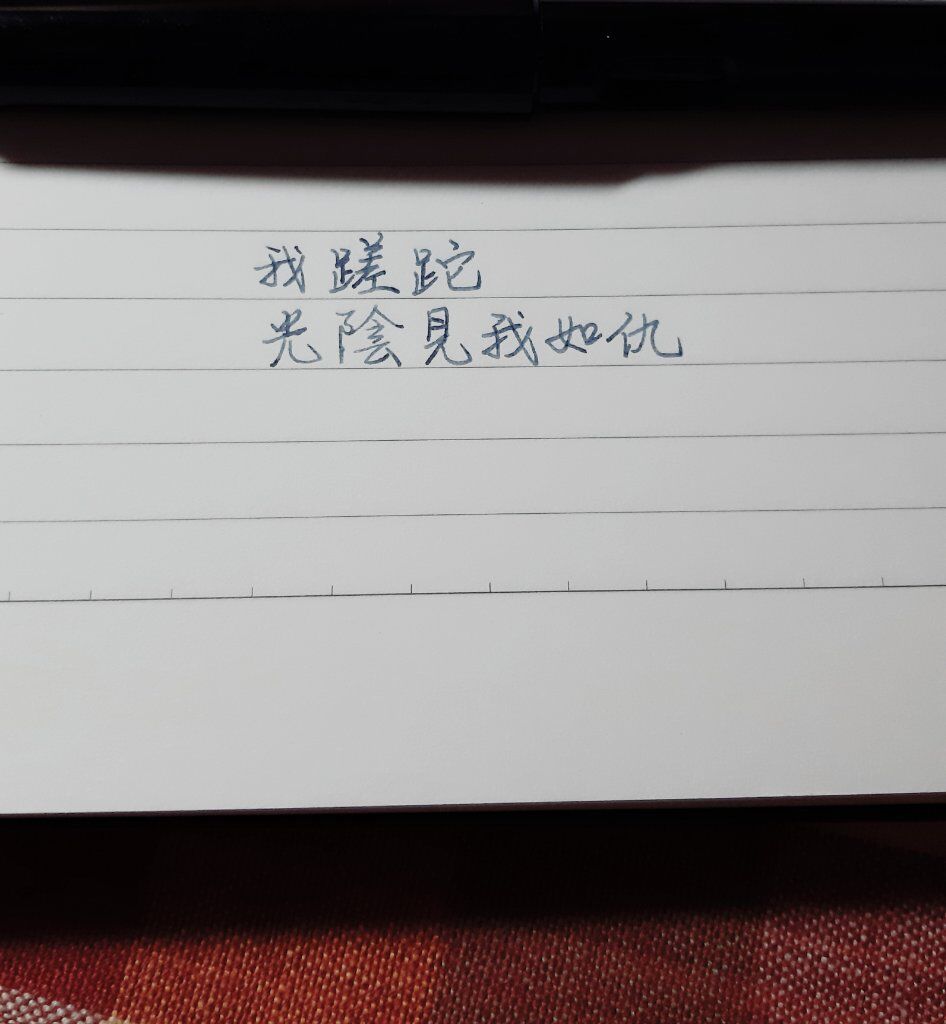 我蹉跎
光陰見我如仇